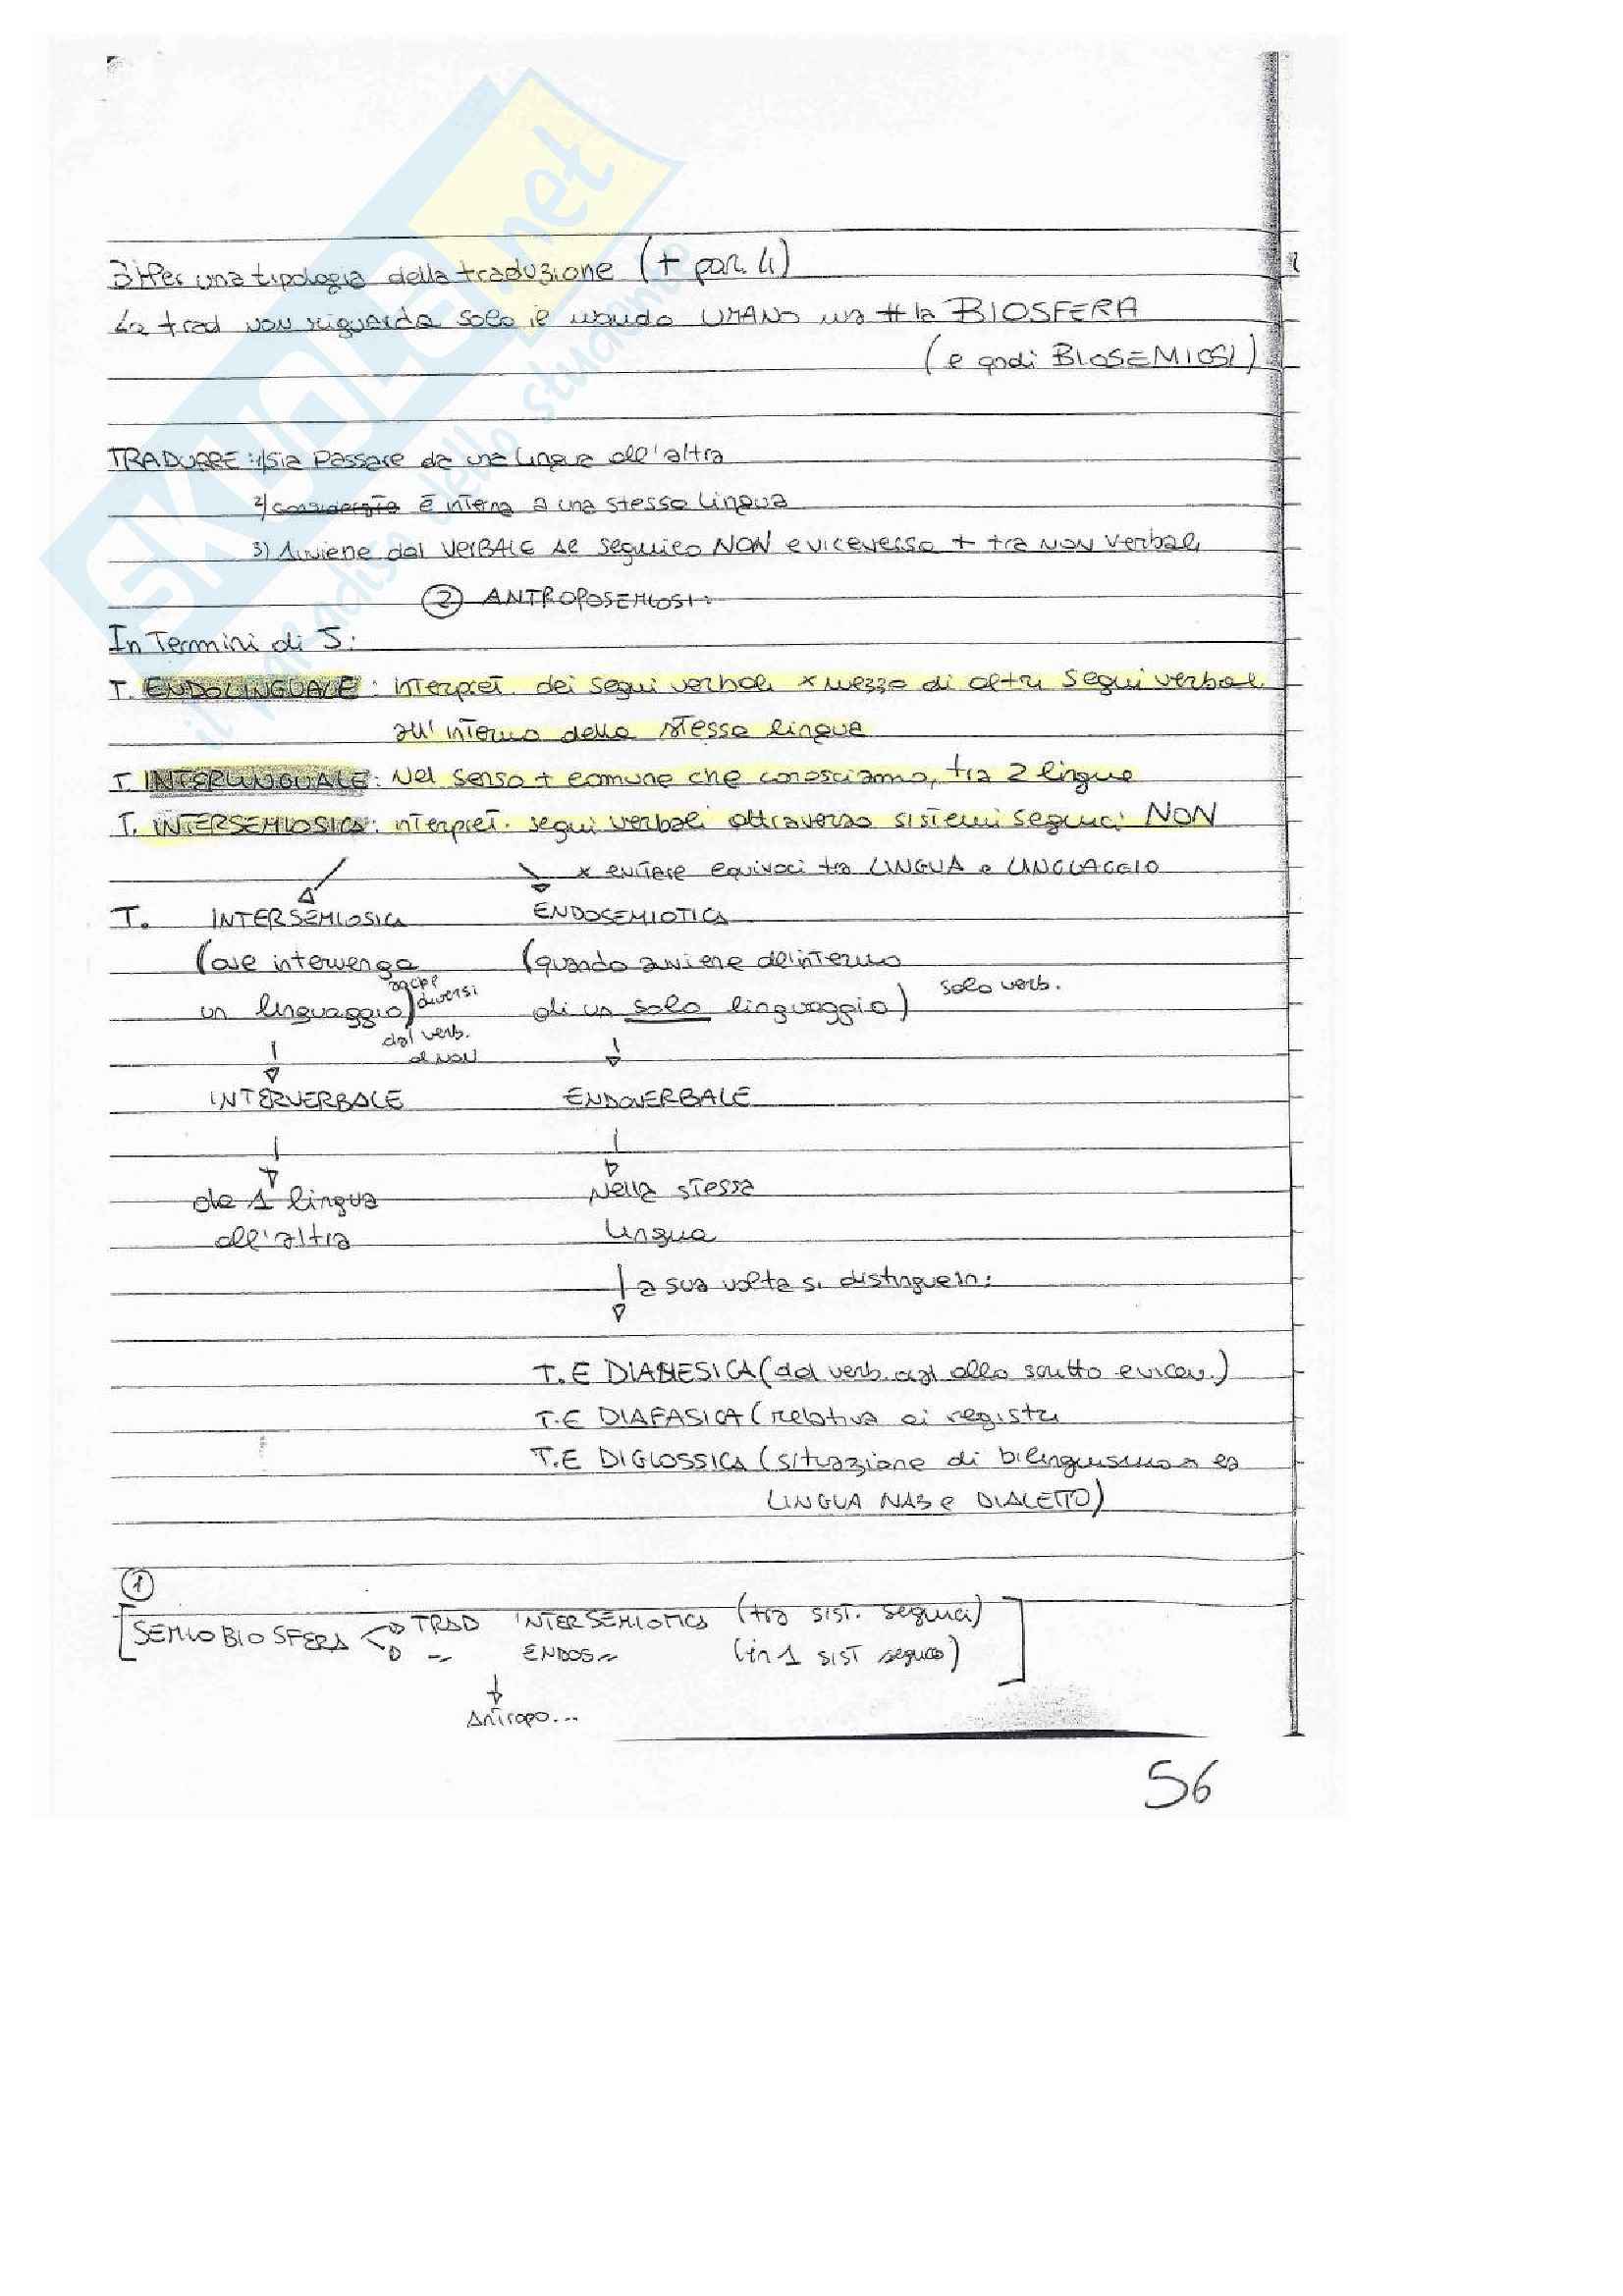 SKUOLA.net
il paradiso dello studente
3) Per una tipologia della traduzione (+ par. 4)
La trad non riguarda solo il mondo UMANO ma # la BIOSFERA
(e qndi BIOSEMIOSI)
TRADURRE: 1) sia passare da una lingua all'altra
2) è interna a una stessa lingua
3) Avviene dal VERBALE al segnico NON e viceversa + tra NON verbali
② ANTROPOSEMIOSI:
In Termini di J:
T. ENDOLINGUALE: interpret. dei segni verbali x mezzo di altri segni verbali
all'interno della stessa lingua
T. INTERLINGUALE: Nel senso + comune che conosciamo, tra 2 lingue
T. INTERSEMIOSICA: interpret. segni verbali attraverso sistemi segnici NON
x evitare equivoci tra LINGUA e LINGUAGGIO
T. INTERSEMIOSICA ENDOSEMIOTICA
(ove intervenga (quando avviene all'interno
un linguaggio) diversi di un solo linguaggio) solo verb.
dal verb.
al NON
INTERVERBALE ENDOVERBALE
da 1 lingua Nella stessa
all'altra lingua
a sua volta si distingue in:
T.E DIAMESICA (dal verb. allo scritto e vicev.)
T.E DIAFASICA (relativa ai registri
T.E DIGLOSSICA (situazione di bilinguismo es
LINGUA NAZ e DIALETTO)
①
[SEMIOBIOSFERA TRAD INTERSEMIOTICA (tra sist. segnici)
-- ENDOS -- (in 1 SIST segnico)]
Antropo...
56